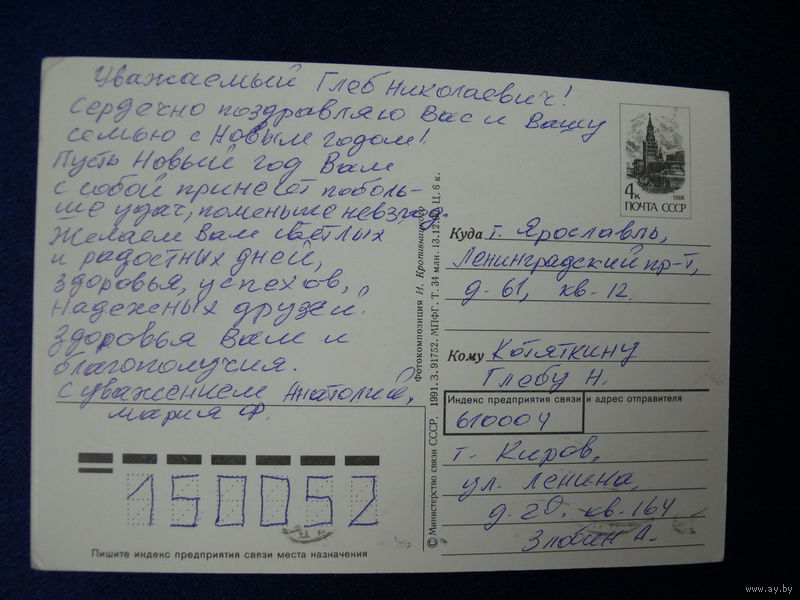 Уважаемый Глеб Николаевич!
Сердечно поздравляю Вас и Вашу
семью с Новым годом!
Пусть Новый год Вам
с собой принесёт поболь-
ше удач, поменьше невзгод.
Желаем Вам светлых
и радостных дней,
здоровья, успехов,
надежных друзей.
Здоровья Вам и
благополучия.
С уважением Анатолий,
Мария Ф.
150052
Пишите индекс предприятия связи места назначения
© Министерство связи СССР. 1991. З. 91752. МПФГ. Т. 34 млн. 13.12. Ц. 6 к.
Фотокомпозиция И. Кропивницкого
4к
1988
ПОЧТА СССР
Куда г. Ярославль,
Ленинградский пр-т,
д. 61, кв. 12.
Кому Котяткину
Глебу Н.
Индекс предприятия связи и адрес отправителя
610004
г. Киров,
ул. Ленина,
д. 20, кв. 164
Злобин А.
www.ay.by